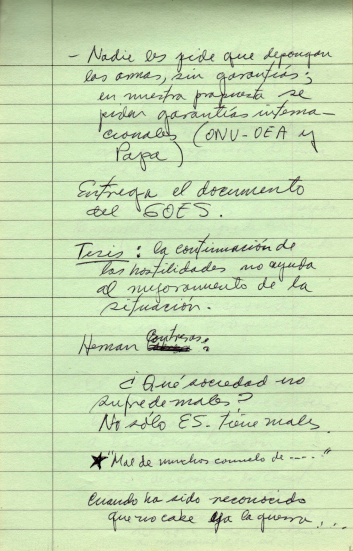 - Nadie les pide que depongan
las armas, sin garantías;
en nuestra propuesta se
piden garantías interna-
cionales (ONU-OEA y
Papa)
Entrega el documento
del GOES.
Tesis: la continuación de
las hostilidades no ayuda
al mejoramiento de la
situación.
Hernan Contreras:
¿Qué sociedad no
sufre de males?
No sólo ES. tiene males.
★ "Mal de muchos consuelo de ----"
Cuando ha sido reconocido
que no cabe ya la guerra...